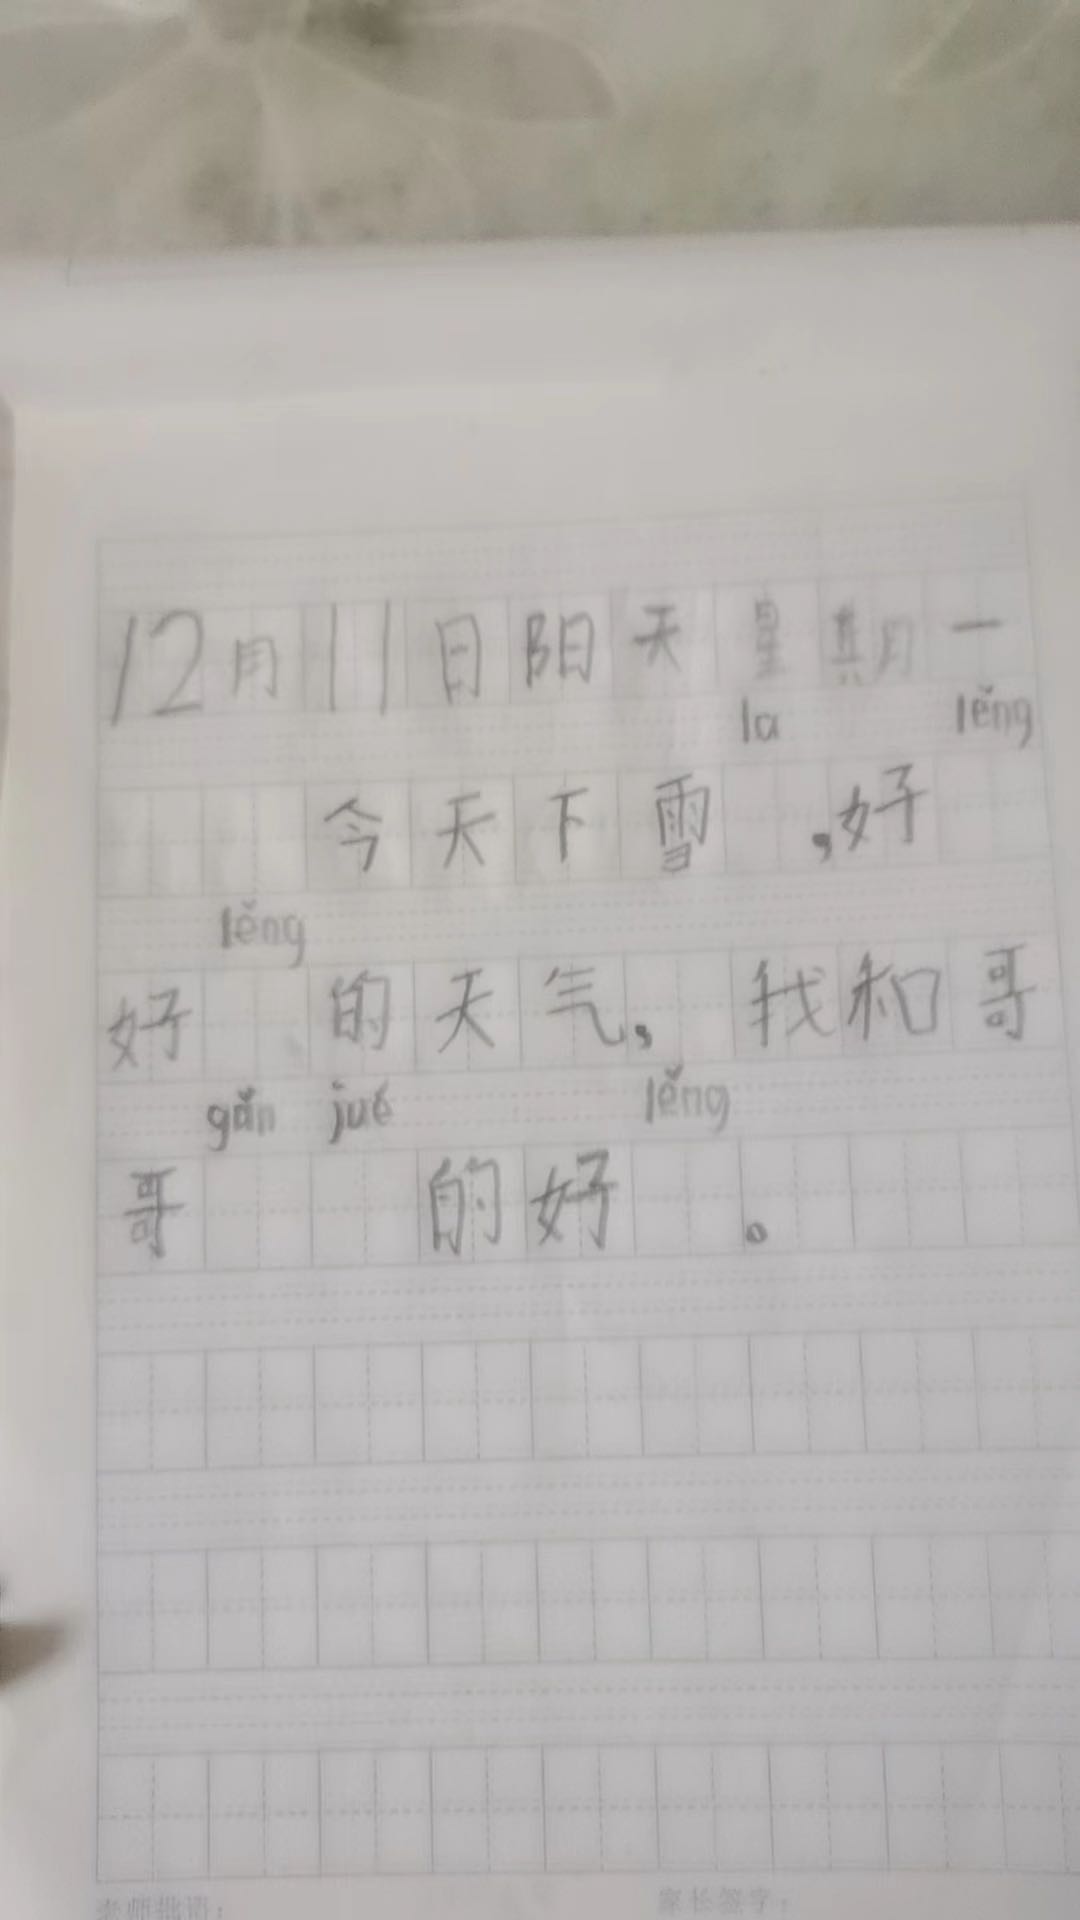 12月11日阳天星期一
la lěng
今天下雪,好
lěng
好的天气,我和哥
gǎn jué lěng
哥的好。
老师批语:家长签字: